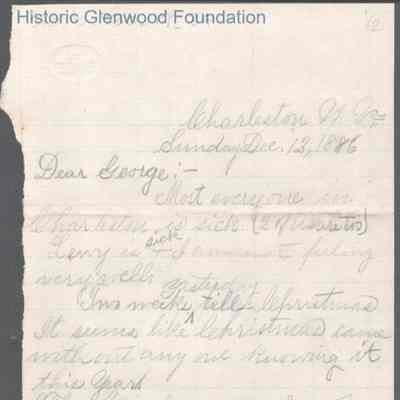 Historic Glenwood Foundation
12
Charleston W. Va
Sunday Dec. 12, 1886
Dear George:-
Most everyone in
Charleston is sick.
Lewy is sick & I am not feeling
very well.
yesterday
Two weeks till Christmas
It seems like Christmas came
without any one knowing it
this Year.